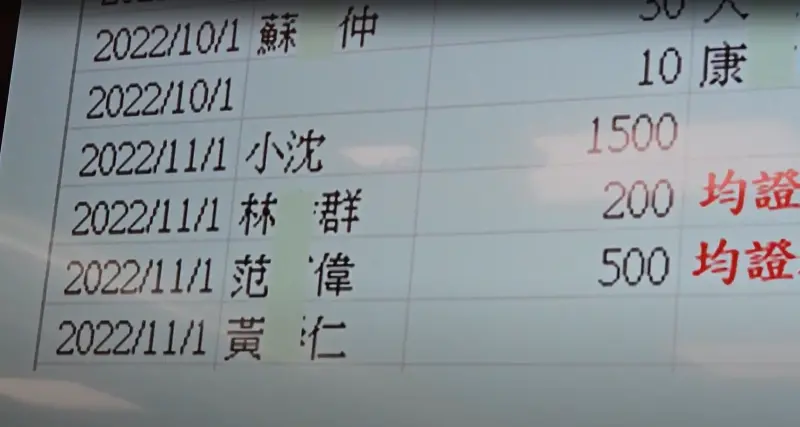 2022/10/1 蘇 仲 30
2022/10/1 10 康
2022/11/1 小沈 1500
2022/11/1 林 群 200 均證
2022/11/1 范 偉 500 均證
2022/11/1 黃 仁